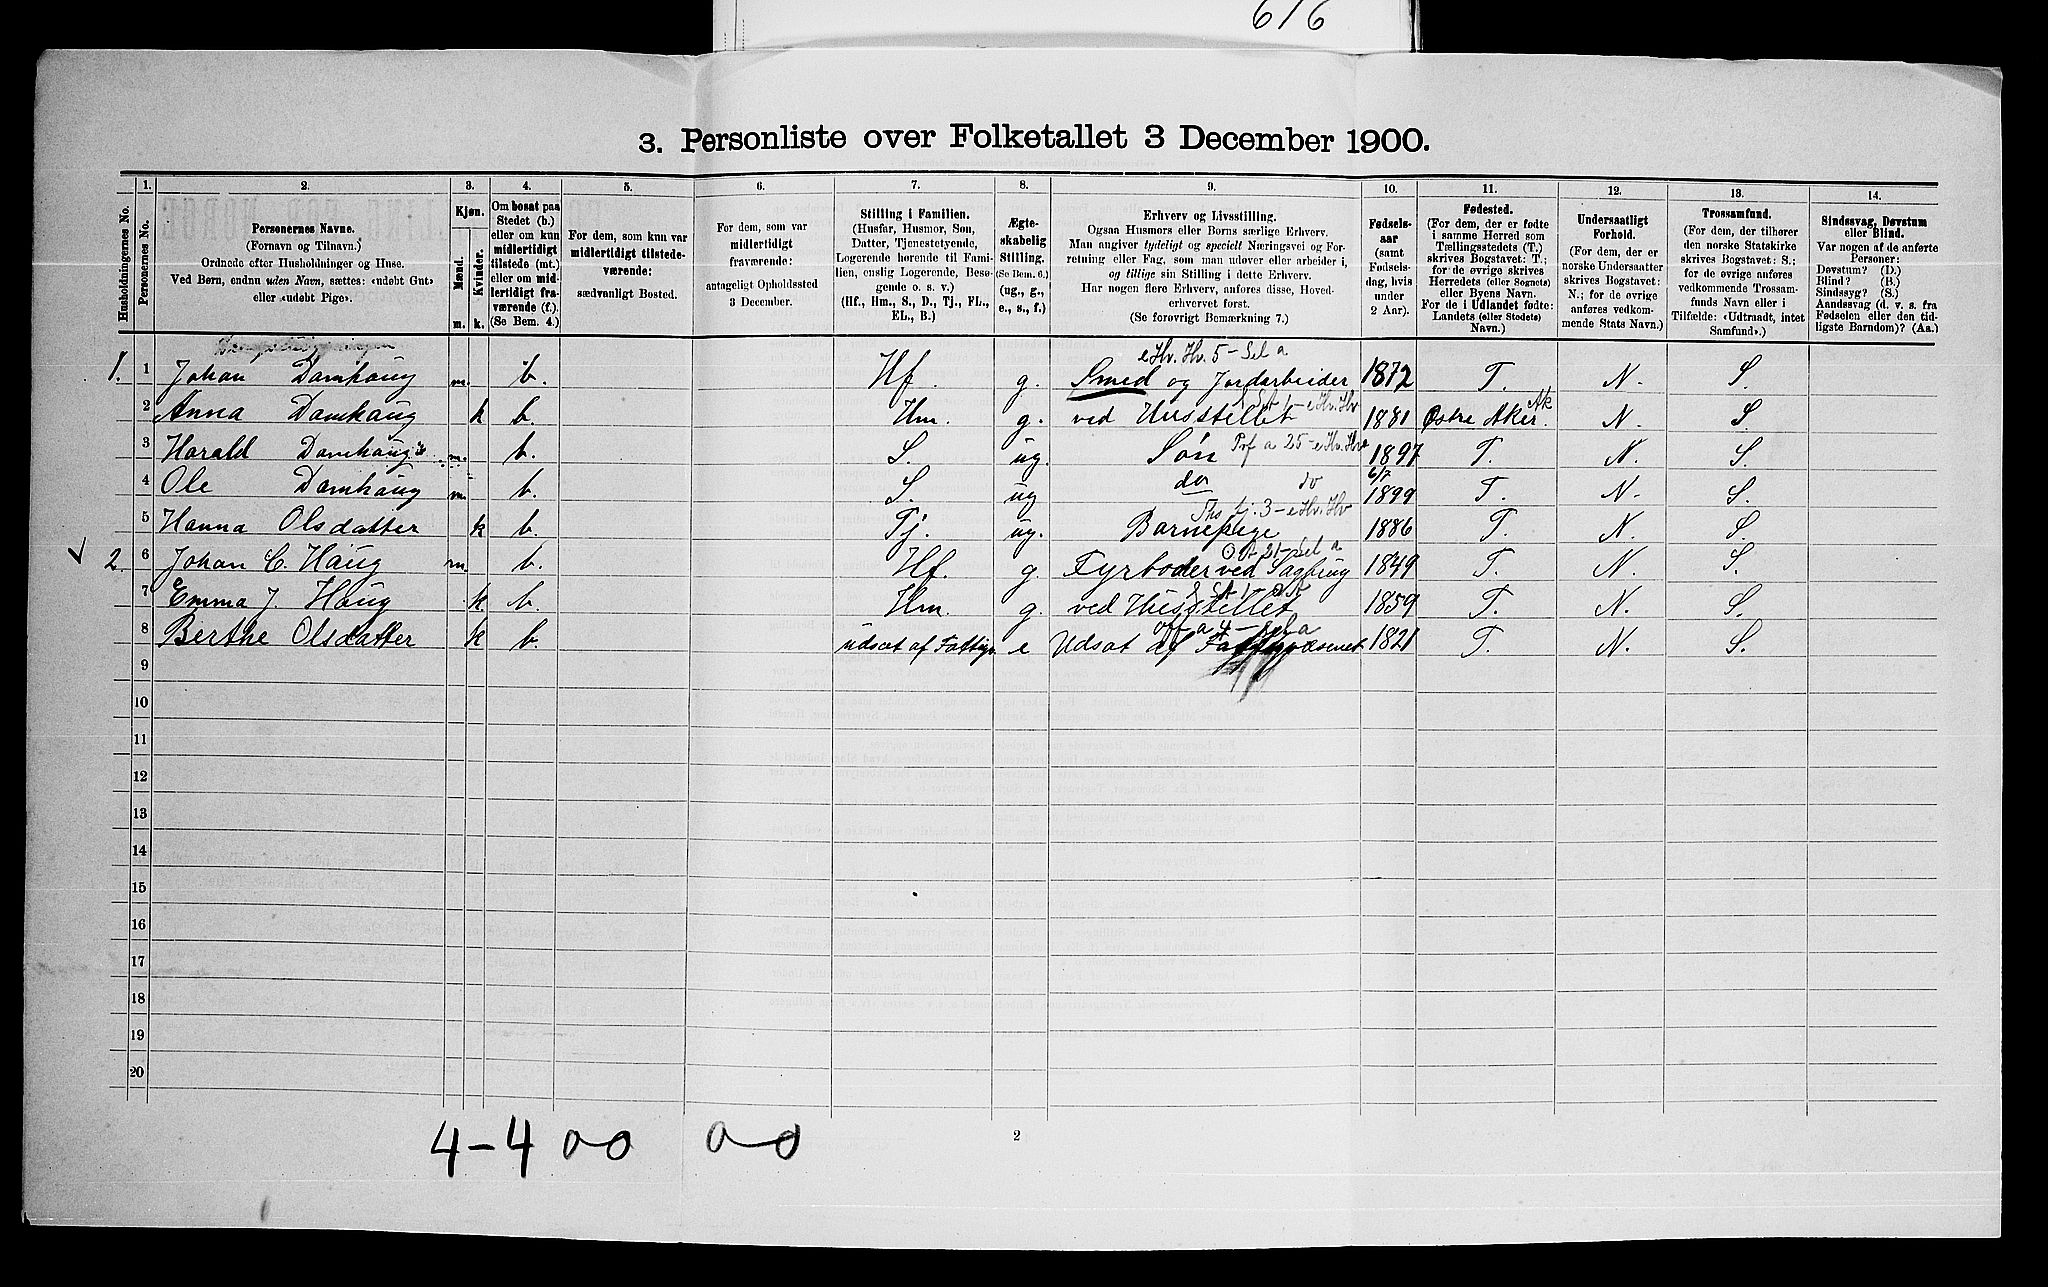 616
3. Personliste over Folketallet 3 December 1900.
Husholdningernes No.
1. Personernes No.
2. Personernes Navne.
(Fornavn og Tilnavn.)
Ordnede efter Husholdninger og Huse.
Ved Børn, endnu uden Navn, sættes: «udøbt Gut»
eller «udøbt Pige».
3. Kjøn.
Mænd. m.
Kvinder. k.
4. Om bosat paa
Stedet (b.)
eller om kun
midlertidigt
tilstede (mt.)
eller om mid-
lertidigt fra-
værende (f.).
(Se Bem. 4.)
5. For dem, som kun var
midlertidigt tilstede-
værende:
sædvanligt Bosted.
6. For dem, som var
midlertidigt
fraværende:
antageligt Opholdssted
3 December.
7. Stilling i Familien.
(Husfar, Husmor, Søn,
Datter, Tjenestetyende,
Logerende hørende til Fami-
lien, enslig Logerende, Besø-
gende o. s. v.)
(Hf., Hm., S., D., Tj., FL.,
EL., B.)
8. Ægte-
skabelig
Stilling.
(Se Bem. 6.)
(ug., g.,
e., s., f.)
9. Erhverv og Livsstilling.
Ogsaa Husmors eller Børns særlige Erhverv.
Man angiver tydeligt og specielt Næringsvei og For-
retning eller Fag, som man udøver eller arbeider i,
og tillige sin Stilling i dette Erhverv.
Har nogen flere Erhverv, anføres disse, Hoved-
erhvervet først.
(Se forøvrigt Bemærkning 7.)
10. Fødsels-
aar
(samt
Fødsels-
dag, hvis
under
2 Aar).
11. Fødested.
(For dem, der er fødte
i samme Herred som
Tællingsstedets (T.)
skrives Bogstavet: T.;
for de øvrige skrives
Herredets (eller Sognets)
eller Byens Navn.
For de i Udlandet fødte:
Landets (eller Stedets)
Navn.)
12. Undersaatligt
Forhold.
(For dem, der er
norske Undersaatter
skrives Bogstavet:
N.; for de øvrige
anføres vedkom-
mende Stats Navn.)
13. Trossamfund.
(For dem, der tilhører
den norske Statskirke
skrives Bogstavet: S.;
for de øvrige anføres
vedkommende Trossam-
funds Navn eller i
Tilfælde: «Udtraadt, intet
Samfund».)
14. Sindssvag, Døvstum
eller Blind.
Var nogen af de anførte
Personer:
Døvstum? (D.)
Blind? (B.)
Sindssyg? (S.)
Aandssvag (d. v. s. fra
Fødselen eller den tid-
ligste Barndom)? (Aa.)
e Hv. Hv. 5 – Sel a
1. 1 Johan Damhaug m. b. Hf. g. Smed og Jordarbeider 1872 T. N. S.
2 Anna Damhaug k b. Hm. g. ved Husstellet 1881 Østre Aker. Ak N. S
3 Harald Damhaug m. b. S. ug. Søn 1897 T. N. S.
4 Ole Damhaug m. b. S. ug do do 6/7 1899 T. N. S.
5 Hanna Olsdatter k b. Tj. ug. Barnepige 1886 T. N. S.
2. 6 Johan C. Haug m. b. Hf. g. Fyrbøder ved Sagbrug 1849 T. N. S.
7 Emma J. Haug k b. Hm. g. ved Husstellet 1859 T. N. S.
8 Berthe Olsdatter k b. udsat af Fattigv. e Udsat af Fattigvæsenet 1821 T. N. S.
9
10
11
12
13
14
15
16
17
18
19
20
4–4 0–0 0–0
2